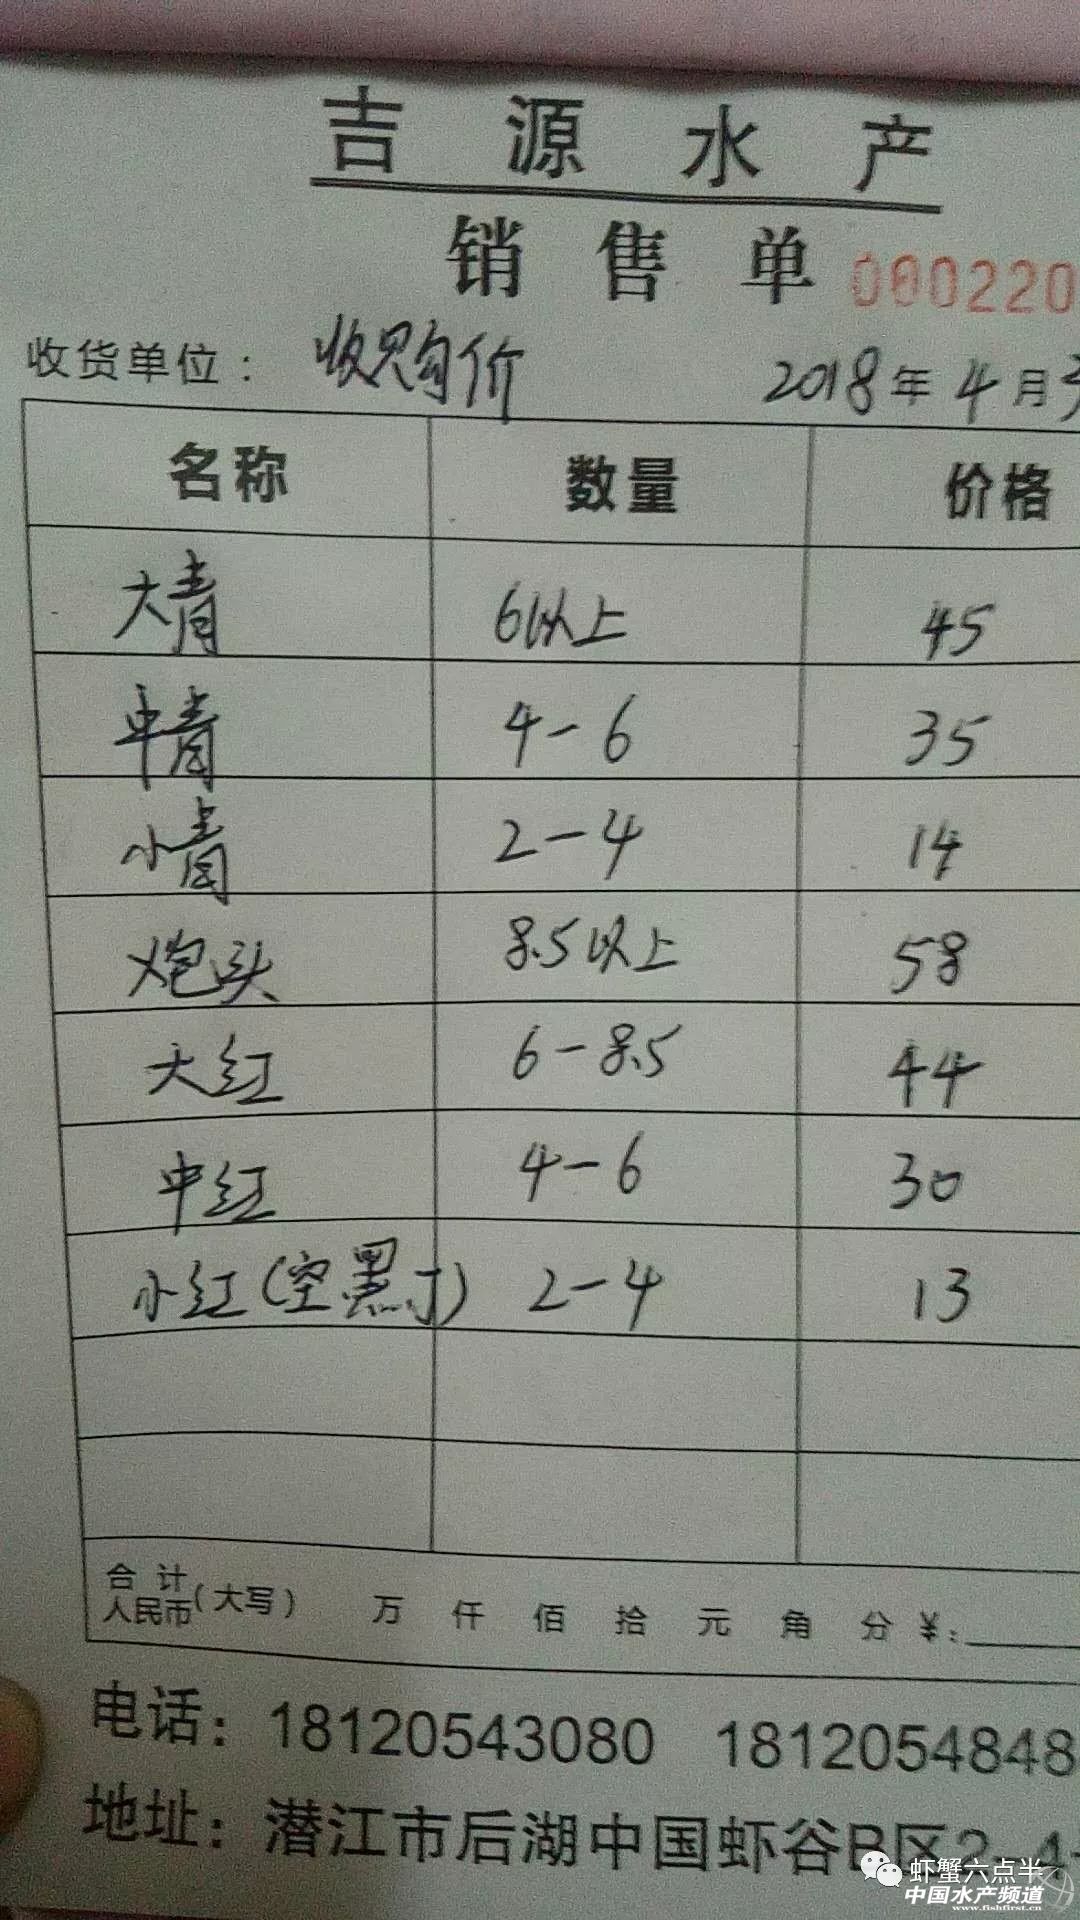 吉源水产
销售单 000220
收货单位： 收购价 2018年4月
名称 数量 价格
大青 6以上 45
中青 4-6 35
小青 2-4 14
炮头 8.5以上 58
大红 6-8.5 44
中红 4-6 30
小红(空黑寸) 2-4 13
合计人民币(大写) 万 仟 佰 拾 元 角 分 ¥:
电话：18120543080 1812054848
地址：潜江市后湖中国虾谷B区2-4-
虾蟹六点半
中国水产频道
www.fishfirst.cn